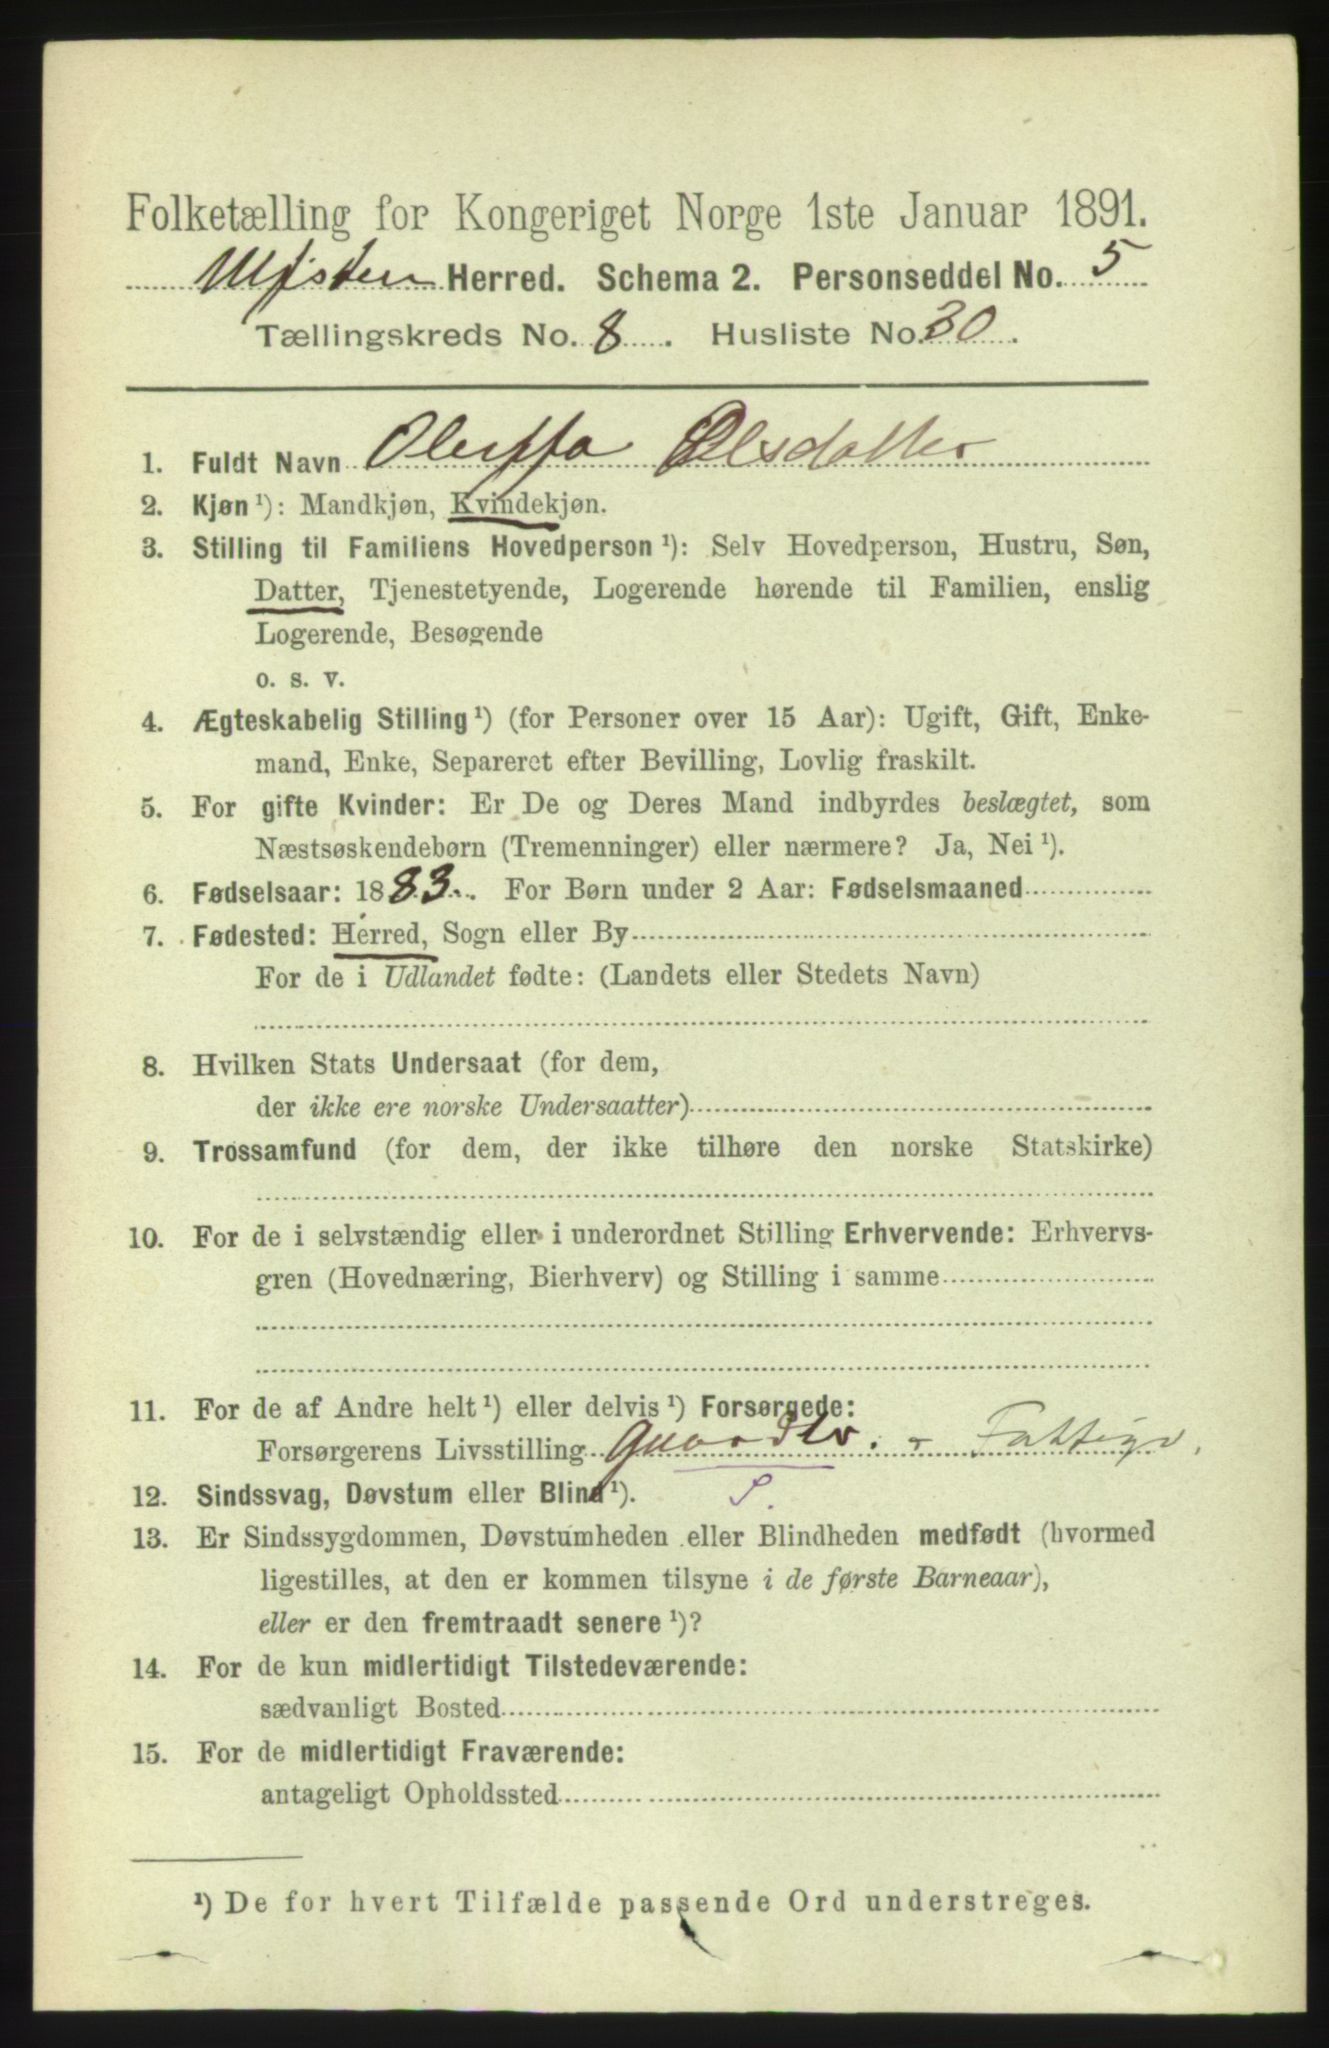 Folketælling for Kongeriget Norge 1ste Januar 1891.
Herred. Schema 2. Personseddel No. 5
Tællingskreds No. 8. Husliste No. 30.
1. Fuldt Navn Oleffa Olsdatter
2. Kjøn ¹): Mandkjøn, Kvindekjøn.
3. Stilling til Familiens Hovedperson ¹): Selv Hovedperson, Hustru, Søn,
Datter, Tjenestetyende, Logerende hørende til Familien, enslig
Logerende, Besøgende
o. s. v.
4. Ægteskabelig Stilling ¹) (for Personer over 15 Aar): Ugift, Gift, Enke-
mand, Enke, Separeret efter Bevilling, Lovlig fraskilt.
5. For gifte Kvinder: Er De og Deres Mand indbyrdes beslægtet, som
Næstsøskendebørn (Tremenninger) eller nærmere? Ja, Nei ¹).
6. Fødselsaar: 1883. For Børn under 2 Aar: Fødselsmaaned
7. Fødested: Herred, Sogn eller By
For de i Udlandet fødte: (Landets eller Stedets Navn)
8. Hvilken Stats Undersaat (for dem,
der ikke ere norske Undersaatter)
9. Trossamfund (for dem, der ikke tilhøre den norske Statskirke)
10. For de i selvstændig eller i underordnet Stilling Erhvervende: Erhvervs-
gren (Hovednæring, Bierhverv) og Stilling i samme
11. For de af Andre helt ¹) eller delvis ¹) Forsørgede:
Forsørgerens Livsstilling
12. Sindssvag, Døvstum eller Blind ¹). S.
13. Er Sindssygdommen, Døvstumheden eller Blindheden medfødt (hvormed
ligestilles, at den er kommen tilsyne i de første Barneaar),
eller er den fremtraadt senere ¹)?
14. For de kun midlertidigt Tilstedeværende:
sædvanligt Bosted
15. For de midlertidigt Fraværende:
antageligt Opholdssted
¹) De for hvert Tilfælde passende Ord understreges.